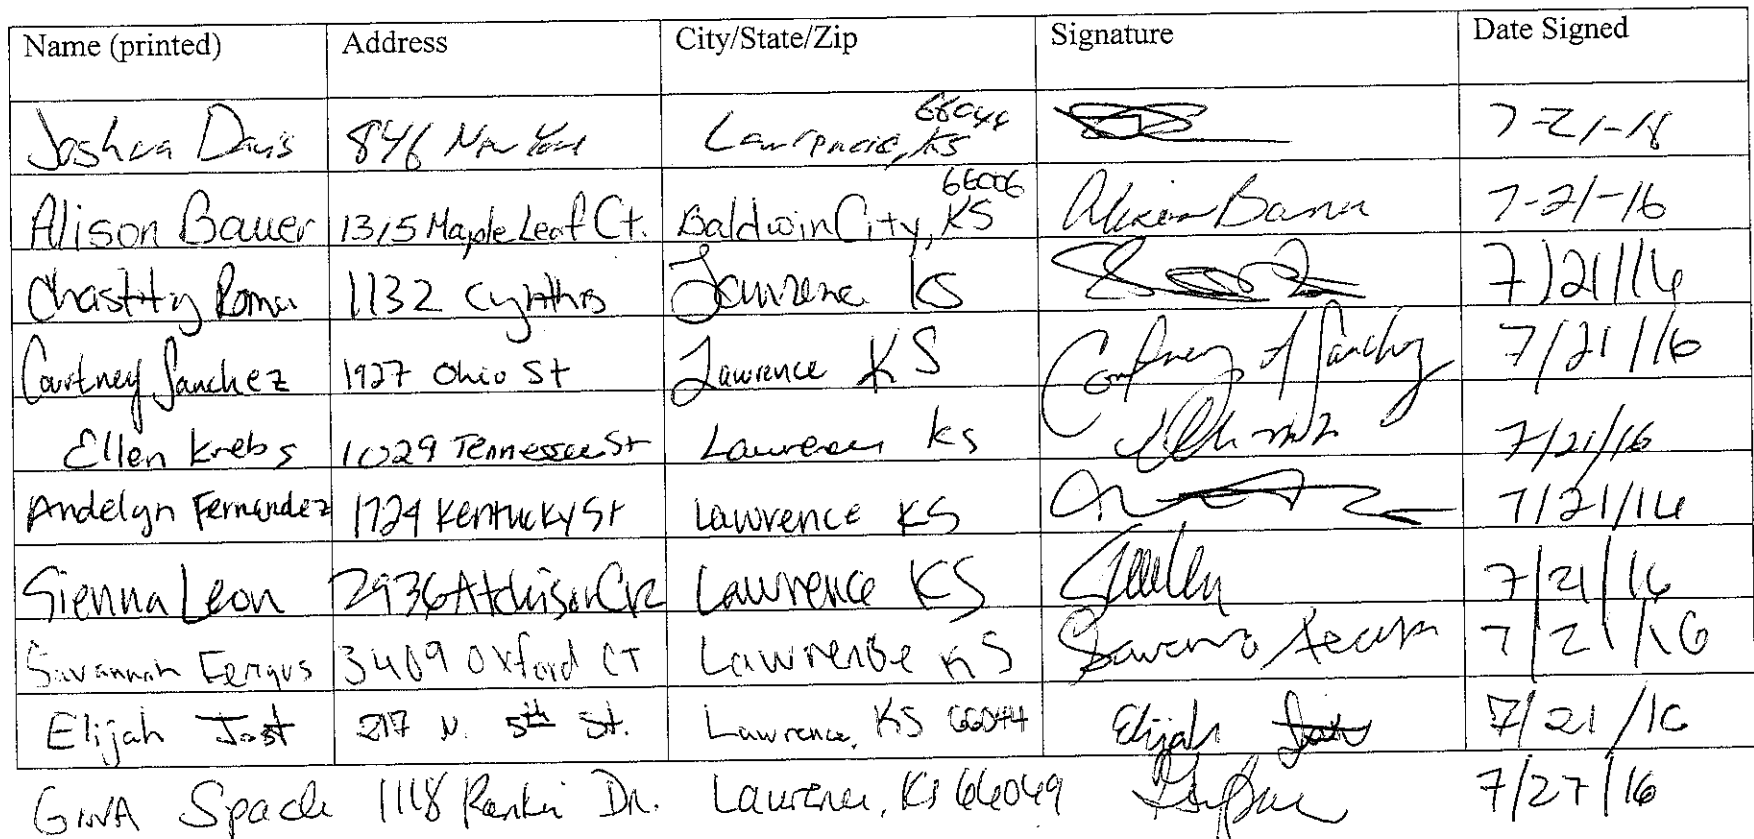 Name (printed) Address City/State/Zip Signature Date Signed
Joshua Davis 846 New York Lawrence, KS 66044 7-21-16
Alison Bauer 1315 Maple Leaf Ct. Baldwin City, KS 66006 Alison Bauer 7-21-16
Chastity 1132 Cynthia Lawrence KS 7/21/16
Courtney Sanchez 1927 Ohio St Lawrence KS Courtney Sanchez 7/21/16
Ellen Krebs 1029 Tennessee St Lawrence KS 7/21/16
Andelyn Fernandez 1724 Kentucky St Lawrence KS 7/21/16
Sienna Leon 2936 Atchison Lawrence KS 7/21/16
Savannah Fergus 3409 Oxford CT Lawrence KS 7/21/16
Elijah Jost 217 N. 5th St. Lawrence, KS 66044 Elijah Jost 7/21/16
GINA Spade 1118 Rankin Dr. Lawrence, KS 66049 7/27/16